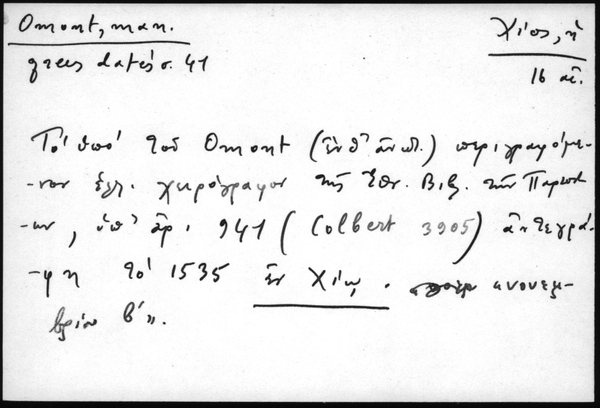 Omont, man.
grecs datés σ. 41
Χίος, ἡ
16 αἰ.
Τό ὑπό τοῦ Omont (ἔνθ' ἀνωτ.) περιγραφόμε-
-νον ἑλλ. χειρόγραφον τῆς Ἐθν. Βιβλ. τῶν Παρισί-
-ων, ὑπ' ἀρ. 941 (Colbert 3905) ἀντεγρά-
-φη τό 1535 ἐν Χίῳ.
βρίου β'».